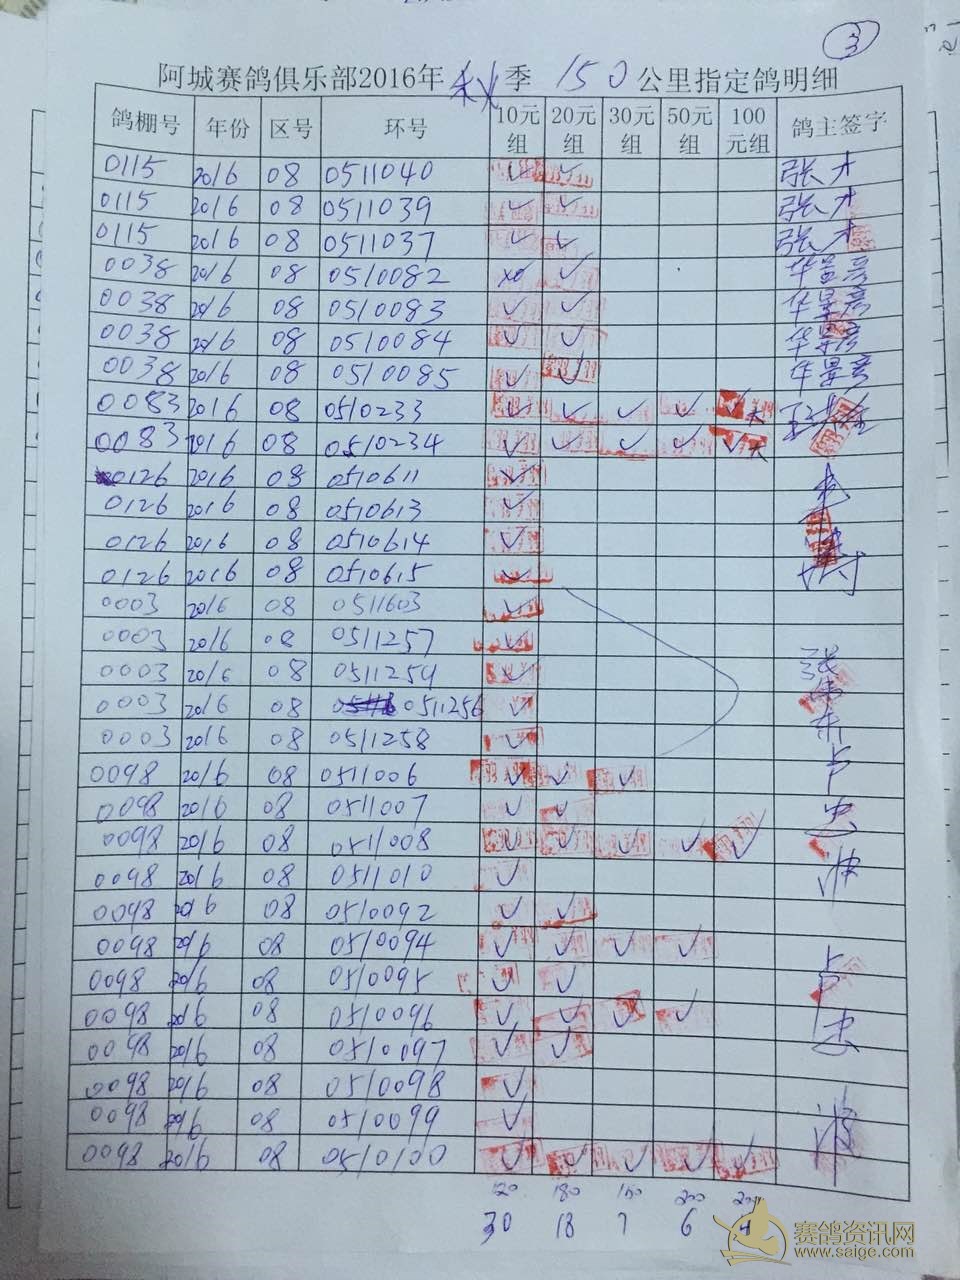 ③
阿城赛鸽俱乐部2016年秋季 150 公里指定鸽明细
鸽棚号 年份 区号 环号 10元组 20元组 30元组 50元组 100元组 鸽主签字
0115 2016 08 0511040 ✓ ✓ 张才
0115 2016 08 0511039 ✓ ✓ 张才
0115 2016 08 0511037 ✓ ✓ 张才
0038 2016 08 0510082 ✓
0038 2016 08 0510083 ✓ ✓
0038 2016 08 0510084 ✓ ✓
0038 2016 08 0510085 ✓ ✓
0083 2016 08 0510233 ✓ ✓ ✓ ✓ ✓
0083 2016 08 0510234 ✓ ✓ ✓ ✓ ✓
0126 2016 08 0510611 ✓
0126 2016 08 0510613 ✓
0126 2016 08 0510614 ✓
0126 2016 08 0510615 ✓
0003 2016 08 0511603 ✓
0003 2016 08 0511257 ✓
0003 2016 08 0511259 ✓
0003 2016 08 0511256 ✓
0003 2016 08 0511258 ✓
0098 2016 08 0511006 ✓ ✓ ✓
0098 2016 08 0511007 ✓ ✓
0098 2016 08 0511008 ✓ ✓ ✓ ✓ ✓
0098 2016 08 0511010 ✓
0098 2016 08 0510092 ✓ ✓
0098 2016 08 0510094 ✓ ✓ ✓ ✓
0098 2016 08 0510095 ✓ ✓
0098 2016 08 0510096 ✓ ✓ ✓ ✓
0098 2016 08 0510097 ✓ ✓
0098 2016 08 0510098 ✓
0098 2016 08 0510099 ✓
0098 2016 08 0510100 ✓ ✓ ✓ ✓ ✓
120 180 150 200
30 18 7 6 4
赛鸽资讯网
www.saige.com